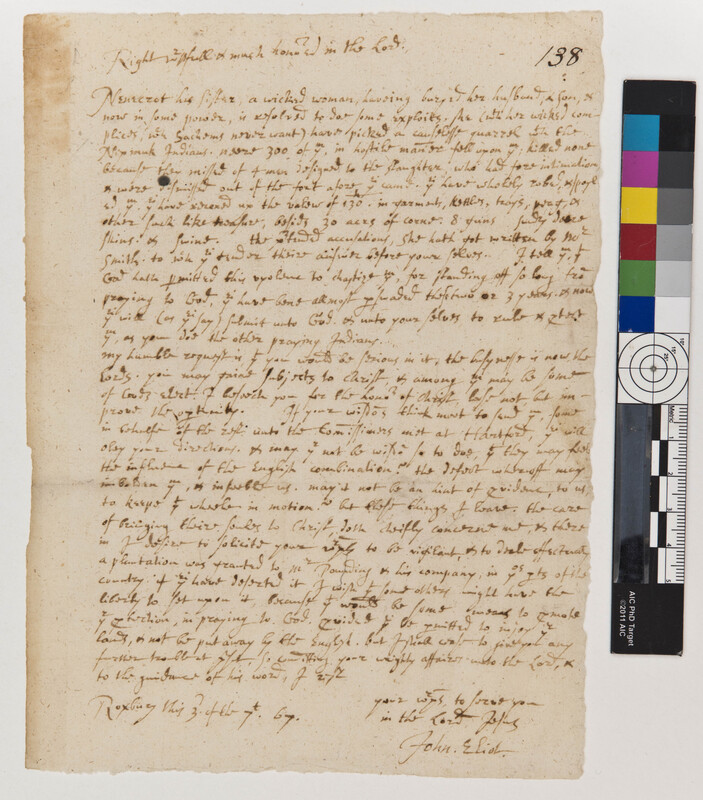 138
Right w'pfull & much honored in the Lord.
Nenecrot his sister, a wicked woman, haveing buryed her husband, & son, &
now in some power, is resolved to doe some exploits. she (with her wicked com
plices, wch Sachems never want) have picked a causlesse quarrel with the
Nipmuk Indians. neere 300 of ym, in hostile manner fell upon ym, killed none
because they missed of 4 men designed to the slaughter, who had fore intimation
& were dismissed out of the fort afore ym came. yei have wholely robed, & spoyl
ed ym. yei have reconed up the valew of in garments, kettles, trays, &
other such like treasure, besids 30 acrs of corne. 8 guns deere
skins. & swine. the accusations, she hath got written by Mr
Smith. to wch yei tender theire answer before your selves. I tell ym, yt
God hath permitted this vyolence to chastize ym, for standing off so long from
praying to God, yei have bene allmost pswaded these two or 3 yeares. & now
yei will (as yei say) submit unto God. & unto your selves to rule & ptect
ym, as you doe the other praying Indians.
my humble request is yt you would be serious in it, the busynesse is now the
lords. you may gaine subjects to Christ, & among ym may be some
of Gods elect. I beseech you for the honor of Christ, lose not but im-
prove the optunity. If your wisdoms think meet to send ym, some
in behalfe of the rest: unto the Comissioners met at Hartford, yei will
obey your directions. & may yt not be wisdom so to doe, yt they may feele
the influence of the English combination the defect wheroff may
imbolden ym, & infeeble us. may it not be an hint of pvidence, to us
to keepe yt wheele in motion. but these things I leave. the care
of bringing theire soules to Christ, doth cheifly concerne me, & there
in I desire to solicite your to be vigilant, & to deale effectually
a plantation was granted to Mr & his company, in yos pts of the
country. if yei have deserted it I wish yt some others might have the
liberty to set upon it, because yt would be some to pmote
yr ptection, in praying to God. pvided yei be pmitted to injoy yr
lands, & not be put away by the English. but I shall to give you any
further trouble at psent. so comitting your weighty affaires unto the Lord, &
to the guidance of his word, I rest
your to serve you
Roxbury this 3. of the 7t. 67.
in the Lord Jesus
John. Eliot.
AIC PhD Target
©2011 AIC